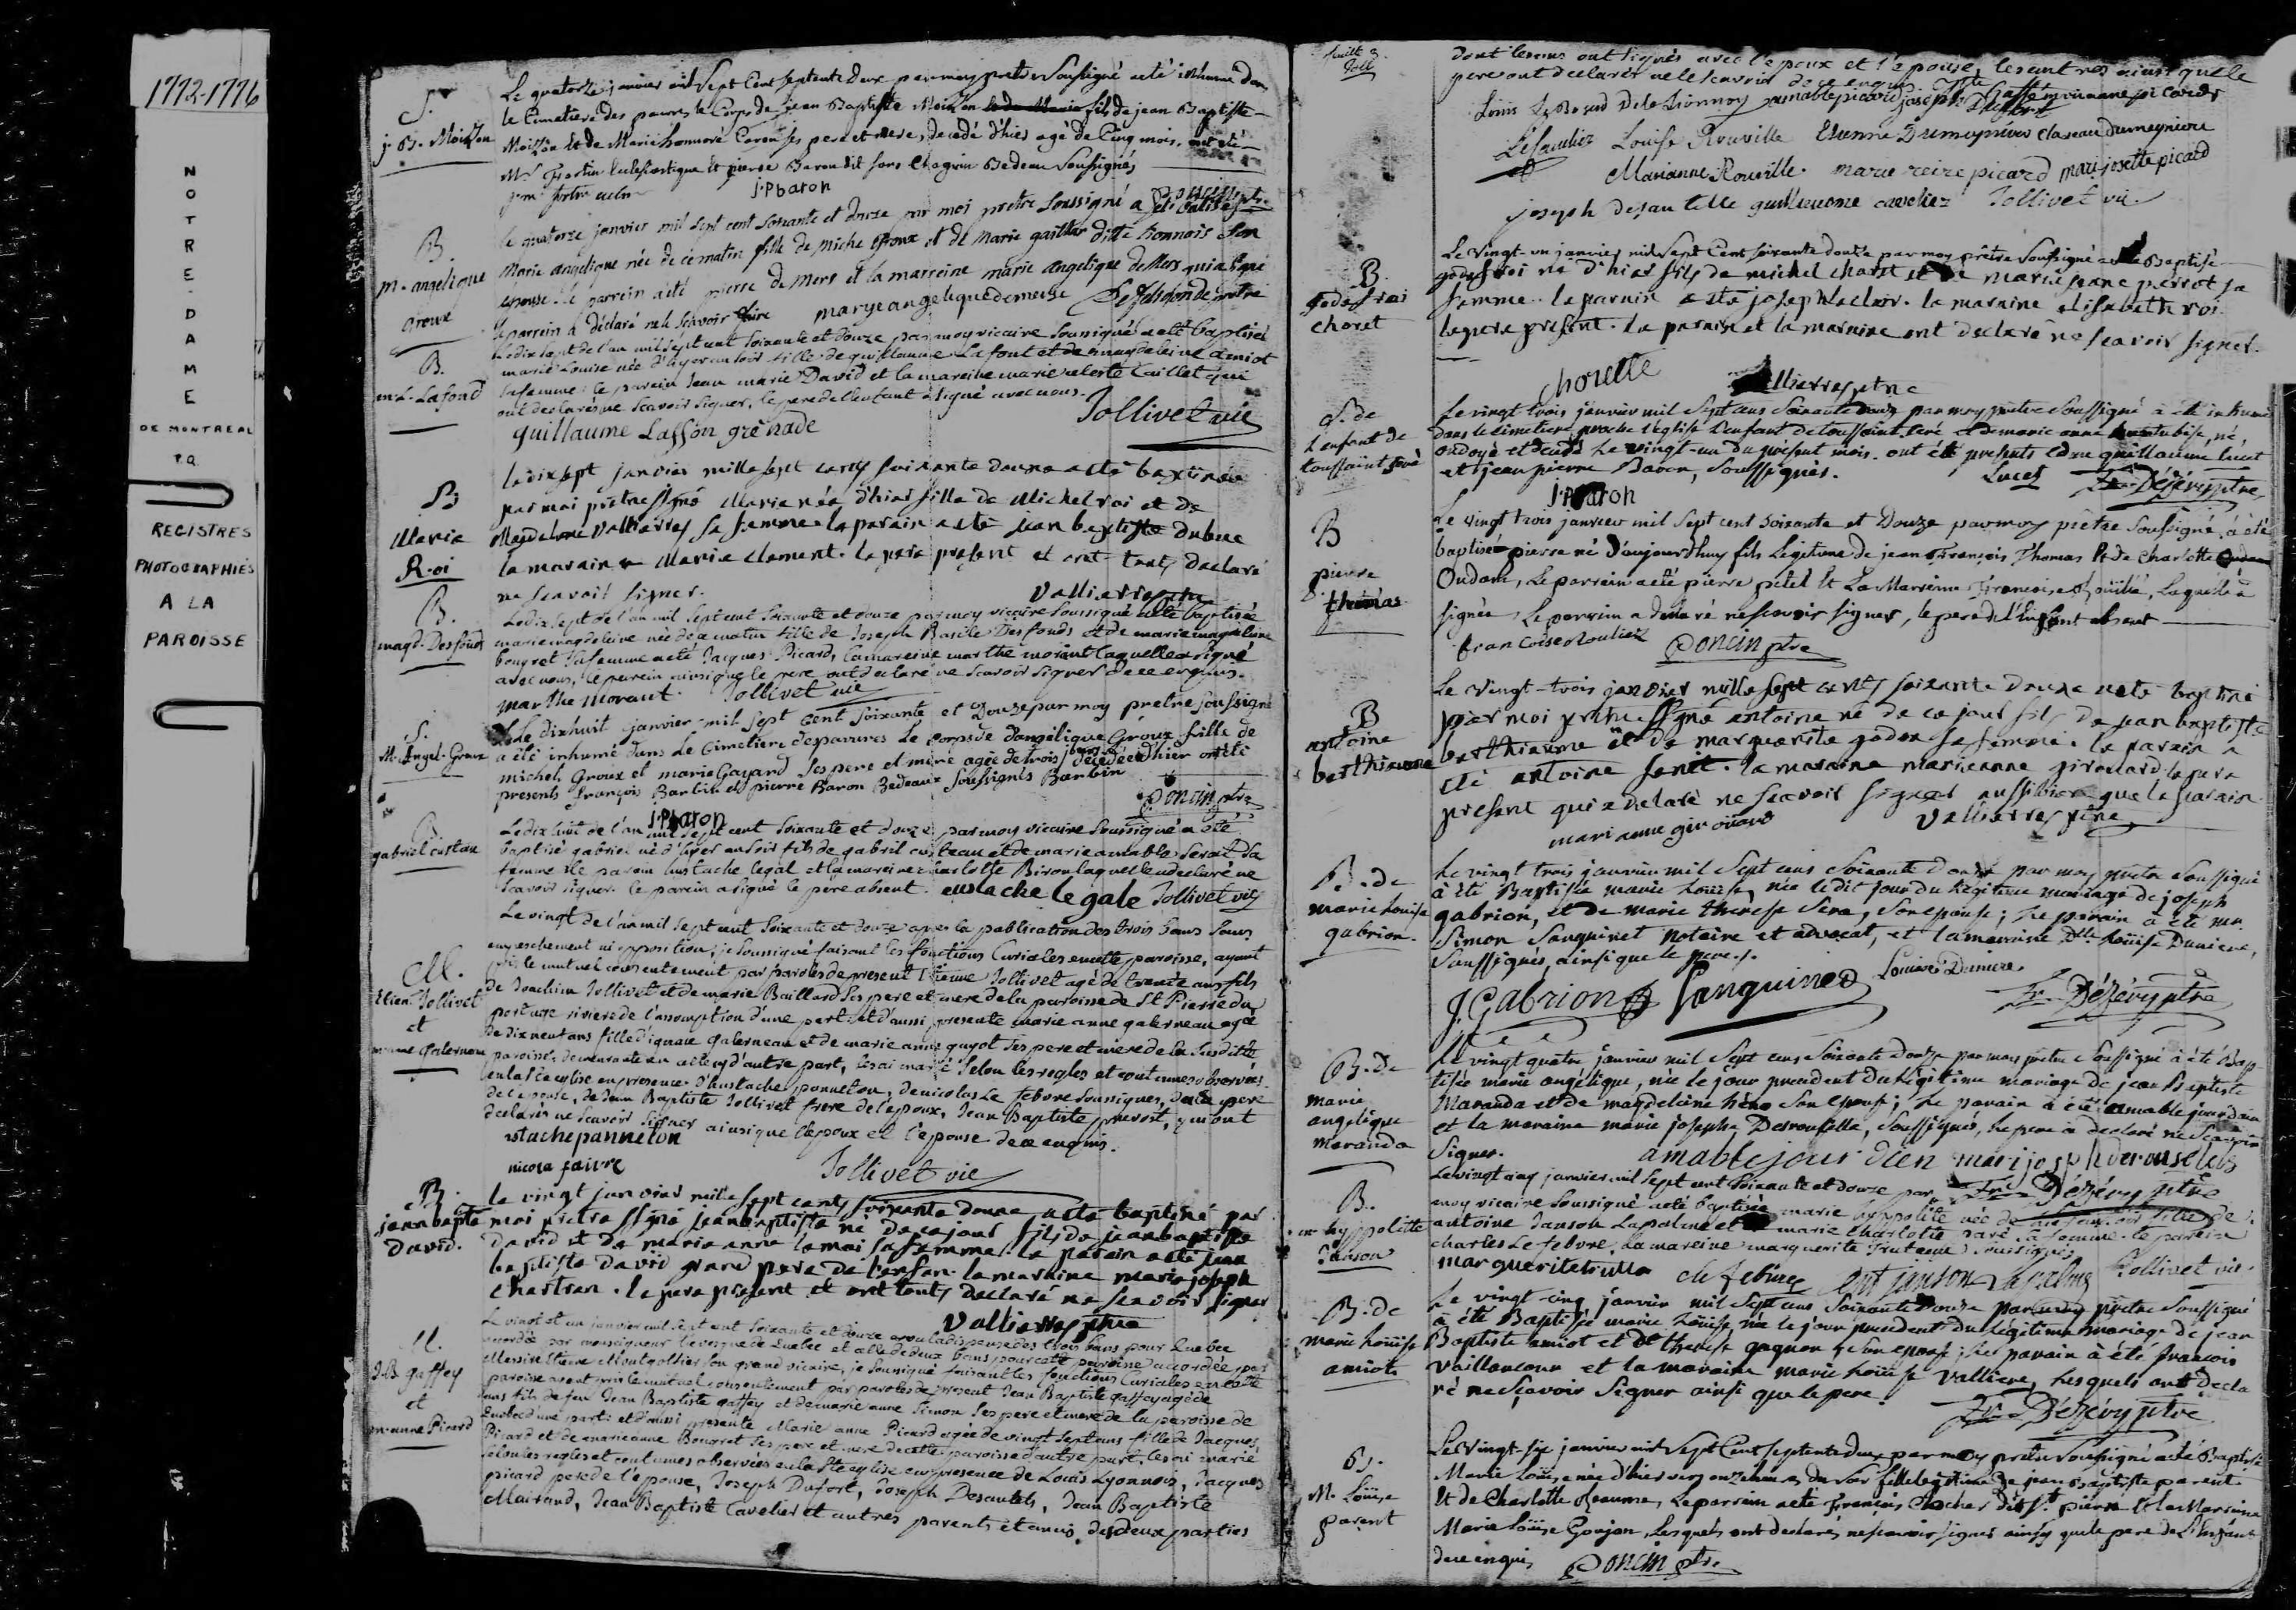 1772-1776
NOTRE-DAME
DE MONTREAL
P.Q.
REGISTRES
PHOTOGRAPHIÉS
A LA
PAROISSE
S.
j. B. Moizon
Le quatorze janvier mil Sept Cent Septente deux par moy pretre Soussigné a eté inhumé dans
le Cimetiere des pauvres le Corps de jean Baptiste Moizon fils de jean Baptiste
Moizon et de Marie honnoré ses pere et mere, decedé d'hier agé de Cinq mois, ont eté
Mr. et pierre Baron dit sans Chagrin Bedeau Soussignés
j.P baron
B.
m. angelique
Groux
le quatorze janvier mil sept cent soixante et douze par moi pretre soussigné a eté batisée
Marie angelique née de ce matin fille de Miche Groux et de Marie gaillar ditte lionnois son
epouse. le parrein a eté pierre de Mers et la marreine marie angelique de Mers qui a signé
le parrein a déclaré ne le sçavoir faire marye angelique demerse
B.
m. L. Lafond
Le dix sept de l'an mil sept cent soixante et douze par moy vicaire soussigné a eté baptisée
marie Louise née d'hyer au soir fille de guillaume Lafont et de magdeleine amiot
sa femme: le parein Jean marie David et la mareine marie celeste Caillet qui
ont declarés ne scavoir signer, le pere de l'enfant a signé avec nous.
guillaume Laffon grenade Jollivet vic
B
Marie
Roi
le dix sept janvier mille sept cents soixante douze a eté baptisée
par moi prêtre signé Marie née d'hier fille de Michel roi et de
Magdelene vallierres sa femme. le parain a eté jean baptiste dubuc
la maraine Marie Clement. le pere present et ont touts declaré
ne scavoir signer. vallierres ptre
B.
magd. Desfonds
Le dix sept de l'an mil sept cent soixante et douze par moy vicaire soussigné a eté baptisée
marie magdeleine née de ce matin fille de Joseph Basile Desfonds et de marie magdeleine
bougret sa femme a eté Jacques Picard, la mareine marthe morant laquelle a signé
avec nous, le parein ainsi que le pere ont declaré ne scavoir signer de ce enquis.
marthe morant. Jollivet vic
S.
M. Angel. Groux
Le dixhuit janvier mil sept cent soixante et Douze par moy pretre soussigné
a été inhumé dans Le Cimetiere des pauvres Le corps de d'angélique Groux fille de
michel Groux et marie Gayard ses pere et mere agée de trois jours decedée d'hier ont eté
presents françois Barbin et pierre Baron Bedeaux soussignés Barbin
j.P baron Poncin ptre
B
gabriel custau
Le dix huit de l'an mil sept cent soixante et douze par moy vicaire soussigné a eté
baptisé gabriel né d'hyer au soir fils de gabriel custeau et de marie amable serat sa
femme le parein eustache legal et la mareine charlotte Biron laquelle a declaré ne
scavoir signer. le parein a signé le pere absent. eustache legale Jollivet vic
M.
Etien. Jollivet
et
m. anne Galerneau
Le vingt de l'an mil sept cent soixante et douze après la publication des trois bans sans
empeschement ni opposition, je soussigné faisant les fonctions Curiales en cette paroisse, ayant
pris le mutuel consentement par paroles de present Etienne Jollivet agé de trente ans fils
de Joachim Jollivet et de marie Baillard ses pere et mere de la paroisse de St Pierre du
portage riviere de l'assomption d'une part: et d'aussi presente marie anne galerneau agée
de dix neuf ans fille d'ignace galerneau et de marie anne guyot ses pere et mere de la susditte
paroisse, demeurante en celle cy d'autre part, les ai marié selon les regles et coutumes observées
en la Ste eglise en presence d'eustache panneton, de nicolas Le febvre soussignes, du pere
de l'epouse, de Jean Baptiste Jollivet frere de l'epoux, Jean Baptiste prevost, qui ont
declarés ne scavoir signer ainsi que l'epoux et l'epouse de ce enquis.
ustache panneton
nicola faivre Jollivet vic
B.
jean bapte
David.
le vingt janvier mille sept cents soixante douze a eté baptisé par
moi prêtre signé jean baptiste né de ce jour fils de jean baptiste
David et de marie anne lemai sa femme. le parain a eté jean
baptiste David grand pere de l'enfan. la maraine marie joseph
Chartran. le pere present et ont touts declaré ne scavoir signer
vallierres ptre
M.
J. B. gaffey
et
m. anne Picard
Le vingt et un janvier mil sept cent soixante et douze vu la dispense des trois bans pour Quebec
accordée par monseigneur l'evesque de Quebec et celle de deux bans pour cette paroisse accordée par
Messire Etiene Montgolfier son grand vicaire, je soussigné faisant les fonctions Curiales en cette
paroisse ayant pris le mutuel consentement par paroles de present Jean Baptiste gaffey agé de
ans fils de feu Jean Baptiste gaffey et de marie anne Simon ses pere et mere de la paroisse de
Quebec d'une part: et d'aussi presente Marie anne Picard agée de vingt sept ans fille de Jacques
Picard et de marie anne Bougret ses pere et mere de cette paroisse d'autre part, les ai marié
selon les regles et coutumes observées en la Ste eglise en presence de Louis Lyonnois, Jacques
picard pere de l'epouse, Joseph Dufort, Joseph Desautels, Jean Baptiste
Mairand, Jean Baptiste Cavelier et autres parents et amis des deux parties
dont les uns ont signés avec l'epoux et l'epouse, les autres ainsi que le
pere ont declarés ne le scavoir de ce enquis.
amable picard joseph Dufort marianne picard
Louise Rouville Etienne Dumeynion Claveau dumeyniou
Marianne Rouville. marie reine picard mari josette picard
joseph desautelle guillieaume caveliez Jollivet vic.
B.
Godefroi
choret
Le vingt-un janvier mil Sept Cent soixante douze par moy prêtre soussigné a eté Baptisé
godefroi né d'hier fils de michel charet et de marie jeane pierrot sa
femme. le parain a eté joseph leclair. la maraine elisabeth roi.
le pere present. le parain et la maraine ont declaré ne scavoir signer.
chorette vallierres ptre
S. de
l'enfant de
toussaint seré
Le vingt trois janvier mil Sept cens Soixante douze par moy pretre soussigné à eté inhumé
dans le cimetiere proche l'eglise l'enfant de toussaint seré et de marie anne né,
ondoyé et decedé Le vingt-un du present mois. ont été présents guillaume lucet
et jean pierre Baron, soussignés. Lucet
j.P baron Dézéry ptre
B
pierre
thomas
Le vingt trois janvier mil Sept cent soixante et Douze par moy prêtre soussigné à été
baptisé pierre né d'aujourdhuy fils Legitime de jean François Thomas et de Charlotte
Oudart, Le parrein a eté pierre pitel et La Marreine Françoise Laquelle à
signée, Le parrein a declaré ne scavoir signer, le pere de l'Enfant absent
francoise Rouliez Poncin ptre
B
antoine
berthiaume
Le Vingt-trois janvier mille Sept cents soixante-douze a eté baptisé
par moi prêtre signé antoine né de ce jour fils de jean baptiste
berthiaume et de marguerite godon sa femme. le parain a
eté antoine senet. la maraine marieanne girouard. le pere
present qui a declaré ne scavoir signer aussi bien que le parain.
mari anne girouard vallierres ptre
B. de
marie Louise
gabrion.
Le vingt trois janvier mil Sept cens Soixante douze par moy pretre soussigné
à été Baptisée marie Louise, née le dit jour du legitime mariage de joseph
gabrion, et de marie thérese Sera, son epouse; Le parain à eté mr
Simon Sanguinet notaire et advocat, et la marraine Dlle Louise Duniere,
soussignés, ainsi que le pere.
J. Gabrion Sanguinet Louise Duniere
Dézéry ptre
B. de
marie
angelique
maranda
Le vingt quatre janvier mil Sept cens Soixante douze par moy pretre soussigné à été bap
tisée marie angélique, née le jour precedent du legitime mariage de jean Baptiste
Maranda et de magdeleine son epouse; Le parain à eté amable jourdain
et la maraine marie josephe Desrouselle, soussignés, Le pere a declaré ne scavoir
signer. amable jourdien mari joseph derouselels
Dézéry ptre
B.
m. hyppolitte
Janson
Le vingt cinq janvier mil sept cent soixante et douze par
moy vicaire soussigné a eté baptisée marie hyppolite née de fille de
antoine Janson Lapalme et marie Charlotte sa femme. le parein
charles Le febvre, la mareine marguerite Truteau soussignés
margueritetrutto ant janson Lapalme Jollivet vic.
B. de
marie Louise
amiote
Le vingt-cinq janvier mil Sept cens Soixante Douze par moy pretre soussigné
à été Baptisée marie Louise, née le jour precedent du legitime mariage de jean
Baptiste amiot et de therese gagnon son epouse; Le parain à été françois
vaillancour et la maraine marie Louise valliere, Lesquels ont décla
ré ne scavoir signer ainsi que le pere.
Dézéry ptre
B.
M. Loüise
parent
Le Vingt-six janvier mil Sept Cent Septente deux par moy pretre Soussigné a eté Baptisée
Marie Loüise née d'hier vers onze heures du soir fille legitime de jean Baptiste parent
et de Charlotte Beaume, Le parrein a eté François dit St. pierre et la Marreine
Marie Loüise Goujon, Lesquels ont declarés ne scavoir signer ainsy que le pere de L'Enfant
de ce enquis Poncin ptre